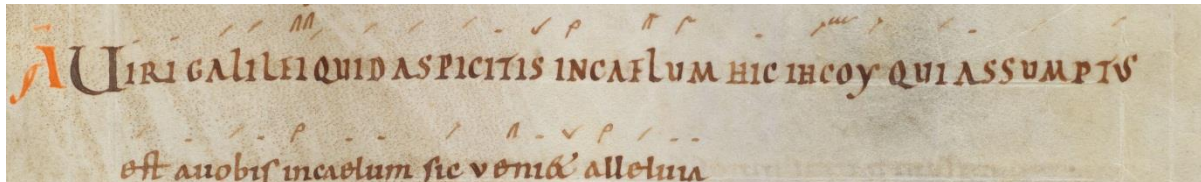 A UIRI GALILEI QUID ASPICITIS IN CAELUM HIC IHCOY QUI ASSUMPTUS
est auobis incaelum sic veni& alleluia